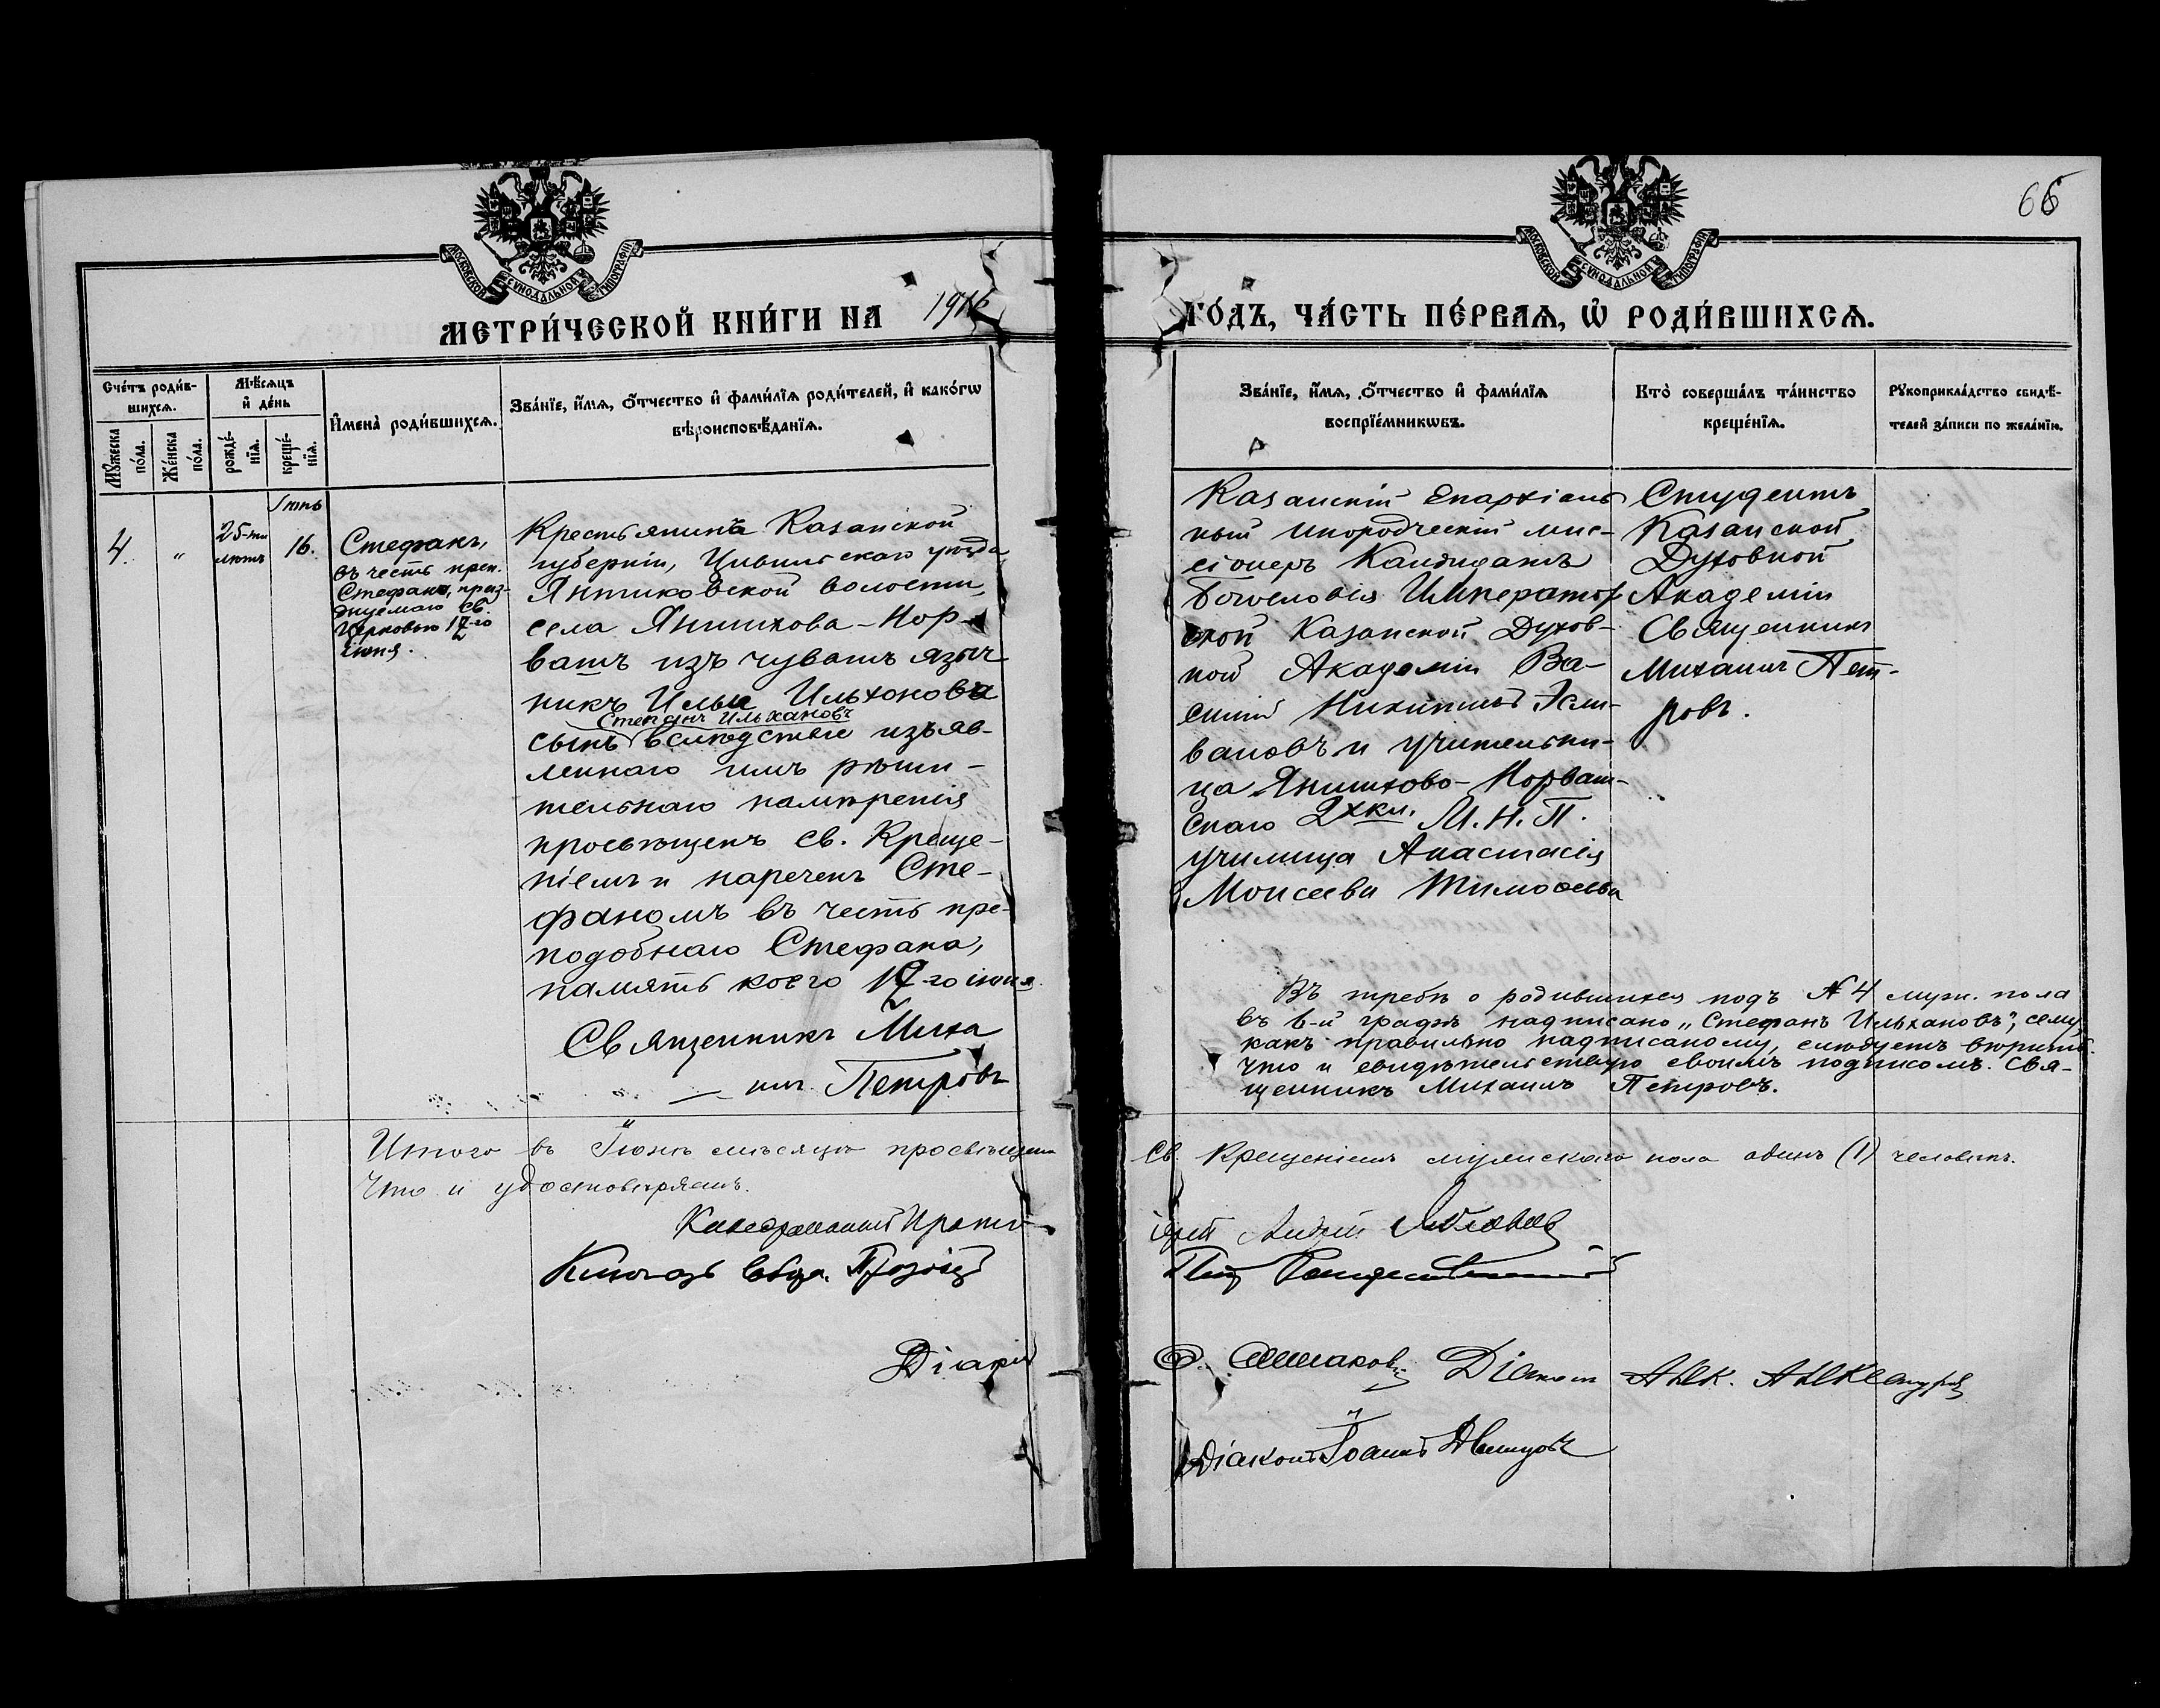 66
МОСКОВСКОЙ СѴНОДАЛЬНОЙ ТИПОГРАФІИ
МОСКОВСКОЙ СѴНОДАЛЬНОЙ ТИПОГРАФІИ
МЕТРИ́ЧЕСКОЙ КНИ́ГИ НА 1916 ГО́ДЪ, ЧА́СТЬ ПЕ́РВАѦ, Ѽ РОДИ́ВШИХСѦ.
Сче́тъ роди́в-
шихсѧ.
Мѣ́сѧцъ
и҆ де́нь
И҆мена̀ роди́вшихсѧ.
Зва́нїе, и҆́мѧ, ѻ҆́тчество и҆ фами́лїѧ роди́телей, и҆ како́гѡ
вѣроисповѣ́данїѧ.
Мꙋ́жеска
по́ла.
Же́нска
по́ла.
рожде́-
нїѧ.
креще́-
нїѧ.
Зва́нїе, и҆́мѧ, ѻ҆́тчество и҆ фами́лїѧ
воспрїе́мникѡвъ.
Кто̀ соверша́лъ та́инство
креще́нїѧ.
Рꙋкоприкла́дство свидѣ́-
телей за́писи по жела́нїю.
Іюнь
4. " 25-ти лѣтъ 16.
Стефанъ,
въ честь преп.
Стефана, праз-
днуемаго Св.
Церковью 17-го
іюня.
Крестьянина Казанской
губерніи, Цивильскаго уѣзда
Янтиковской волости,
села Янишхова-Нор-
вашъ изъ чувашъ языч-
никъ Ильи Ильхонова
Степанъ Ильхановъ
сынъ вслѣдствіе изъяв-
леннаго имъ рѣши-
тельнаго намѣренія
просвѣщенъ св. Креще-
ніемъ и нареченъ Сте-
фаномъ въ честь пре-
подобнаго Стефана,
память коего 17-го іюня.
Священникъ Миха
илъ Петровъ
Казанскій Епархіаль
ный инородческій мис-
сіонеръ Кандидатъ
Богословія Император
ской Казанской Духов-
ной Академіи Ва-
силій Никитичъ Эли-
вановъ и учительни-
ца Янишхово-Норваш-
скаго 2хкл. М.Н.П.
училища Анастасія
Моисеева Тимоѳеева
Студентъ
Казанской
Духовной
Академіи
Священникъ
Михаилъ Пет-
ровъ.
Въ требѣ о родившихся подъ № 4 муж. пола
въ 6-й графѣ надписано „Стефанъ Ильхановъ", сему
какъ правильно надписаному, слѣдуетъ вѣрить.
Что и свидѣтельствую своимъ подписомъ. Свя-
щенникъ Михаилъ Петровъ.
Итого въ Іюнѣ мѣсяцѣ просвѣщенъ Св. Крещеніемъ мужскаго пола одинъ (1) человѣкъ.
Что и удостовѣряемъ.
Каѳедральный Прото
іерей Андрей Яблоковъ
Ключарь Свящ.
Діаконъ
Діаконъ Алек. Александровъ
Діаконъ Іоаннъ